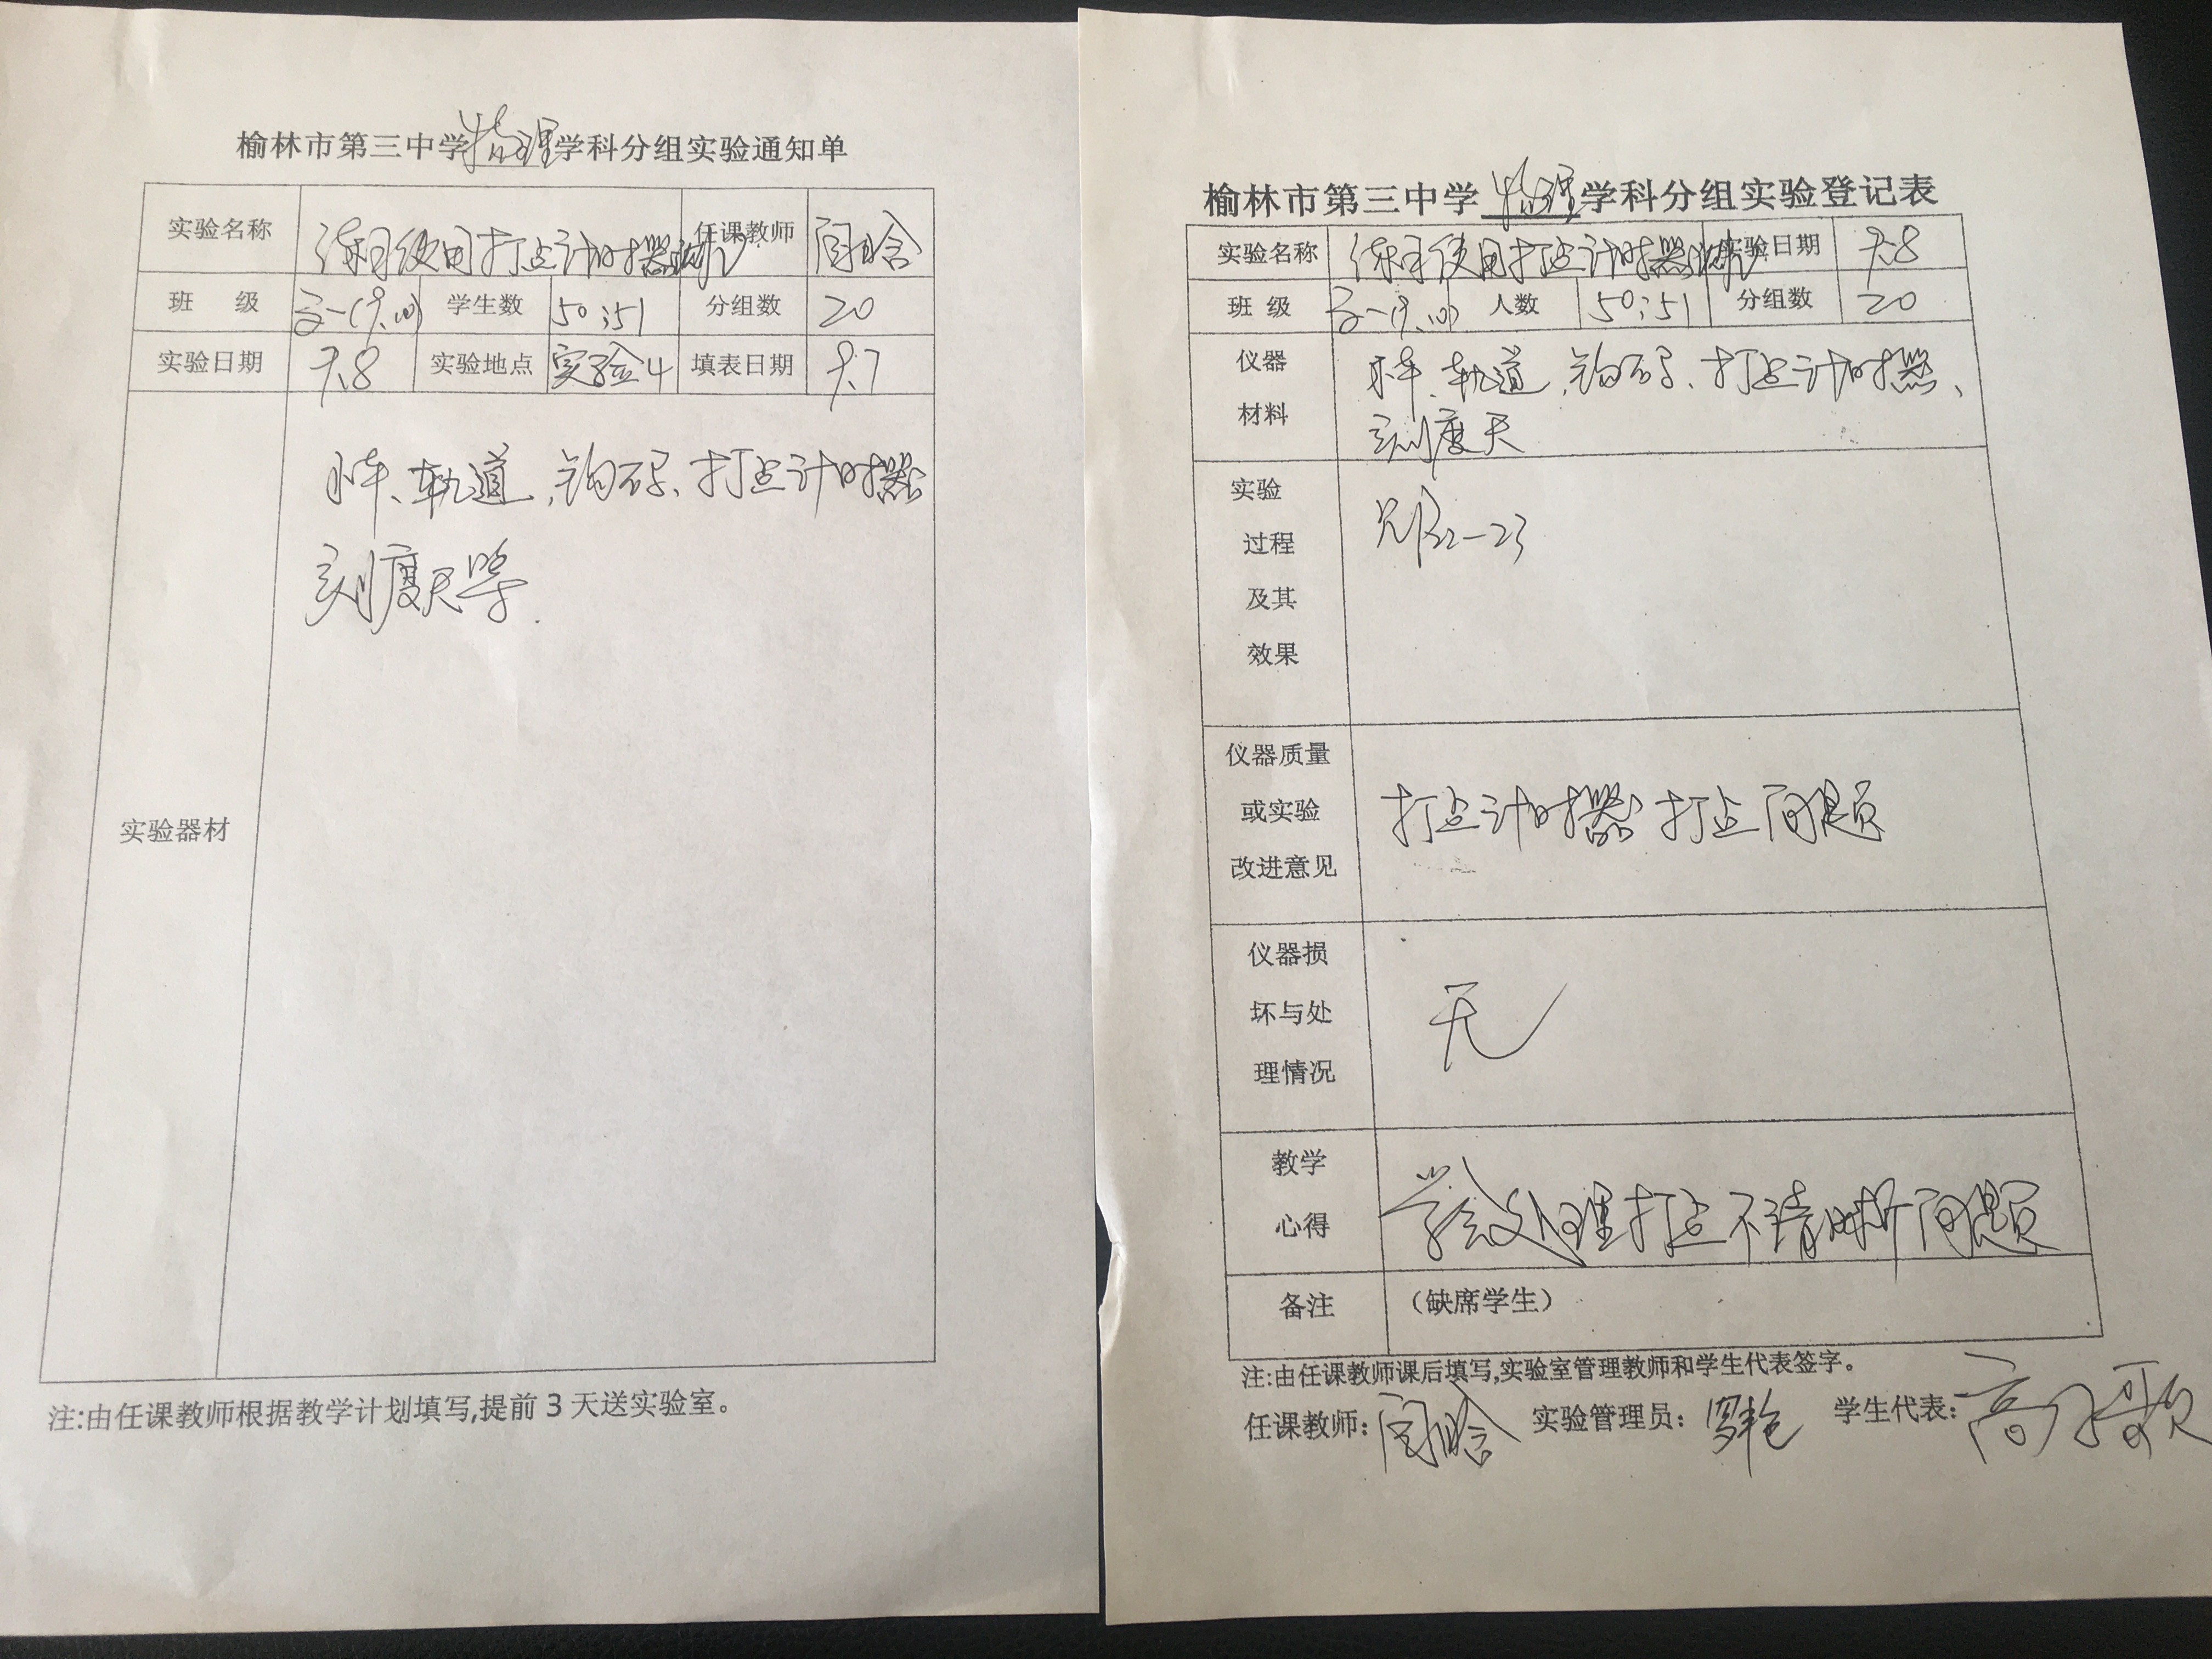 榆林市第三中学物理学科分组实验通知单
实验名称 练习使用打点计时器 任课教师 闫晗
班 级 高一(9、10) 学生数 50;51 分组数 20
实验日期 9.8 实验地点 实验4 填表日期 9.7
实验器材
小车、轨道、钩码、打点计时器
刻度尺等.
注:由任课教师根据教学计划填写,提前3天送实验室。
榆林市第三中学 物理 学科分组实验登记表
实验名称 练习使用打点计时器 实验日期 9.8
班 级 高一(9、10) 人数 50;51 分组数 20
仪器
材料
小车、轨道、钩码、打点计时器、
刻度尺
实验
过程
及其
效果
22-23
仪器质量
或实验
改进意见
打点计时器打点问题
仪器损
坏与处
理情况
无
教学
心得
学会处理打点不清晰问题
备注 (缺席学生)
注:由任课教师课后填写,实验室管理教师和学生代表签字。
任课教师: 闫晗 实验管理员: 学生代表: 高